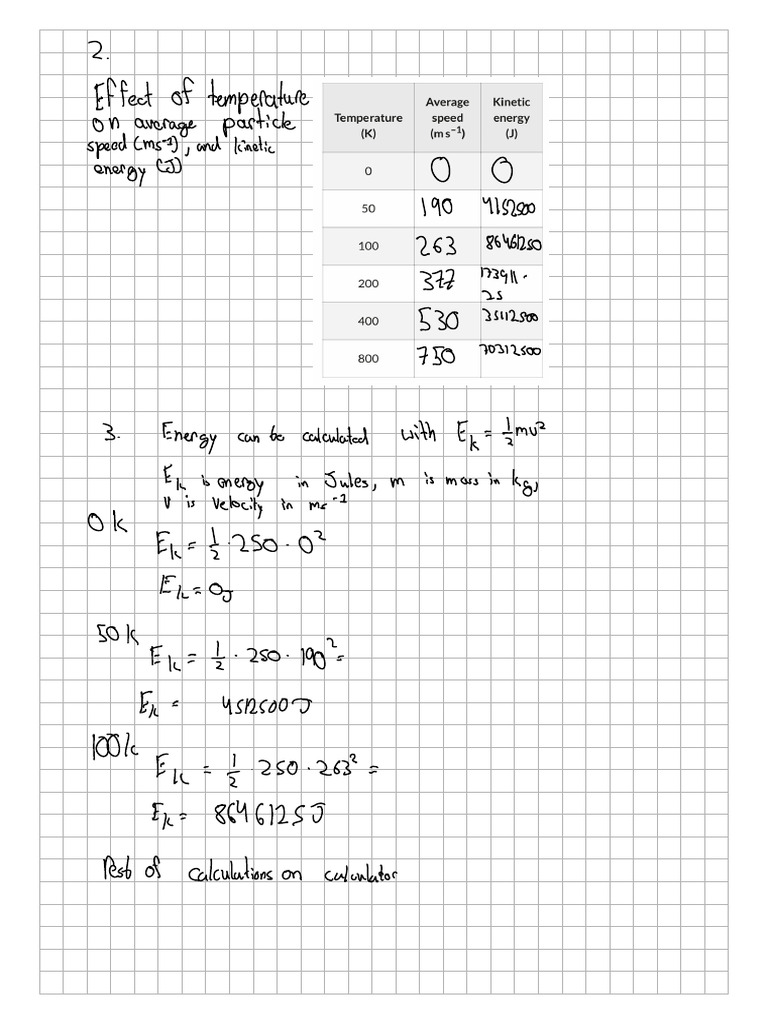 2.
Effect of temperature
on average particle
speed (ms⁻¹), and kinetic
energy (J)
Temperature (K) Average speed (m s⁻¹) Kinetic energy (J)
0 0 0
50 190 4152500
100 263 86461250
200 377 173911.25
400 530 35112500
800 750 70312500
3. Energy can be calculated with Eₖ = ½mv²
Eₖ is energy in Jules, m is mass in kg,
v is velocity in ms⁻¹
0 k
Eₖ = ½ · 250 · 0²
Eₖ = 0J
50 k
Eₖ = ½ · 250 · 190² =
Eₖ = 4512500J
100k
Eₖ = ½ · 250 · 263² =
Eₖ = 8646125J
Rest of calculations on calculator